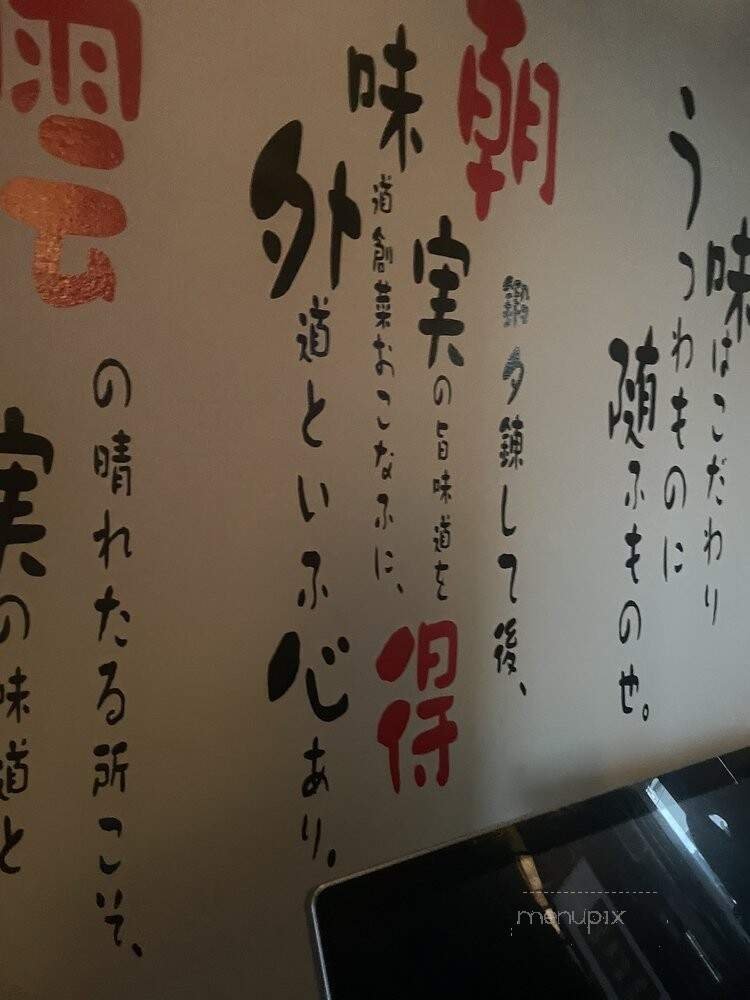 味はこだわり
うつわものに
随ふもの也。
朝鍛夕錬して後、
実の旨味道を得
味道創菜おこなふに、
外道といふ心あり。
雲の晴れたる所こそ、
実の味道と
menupix